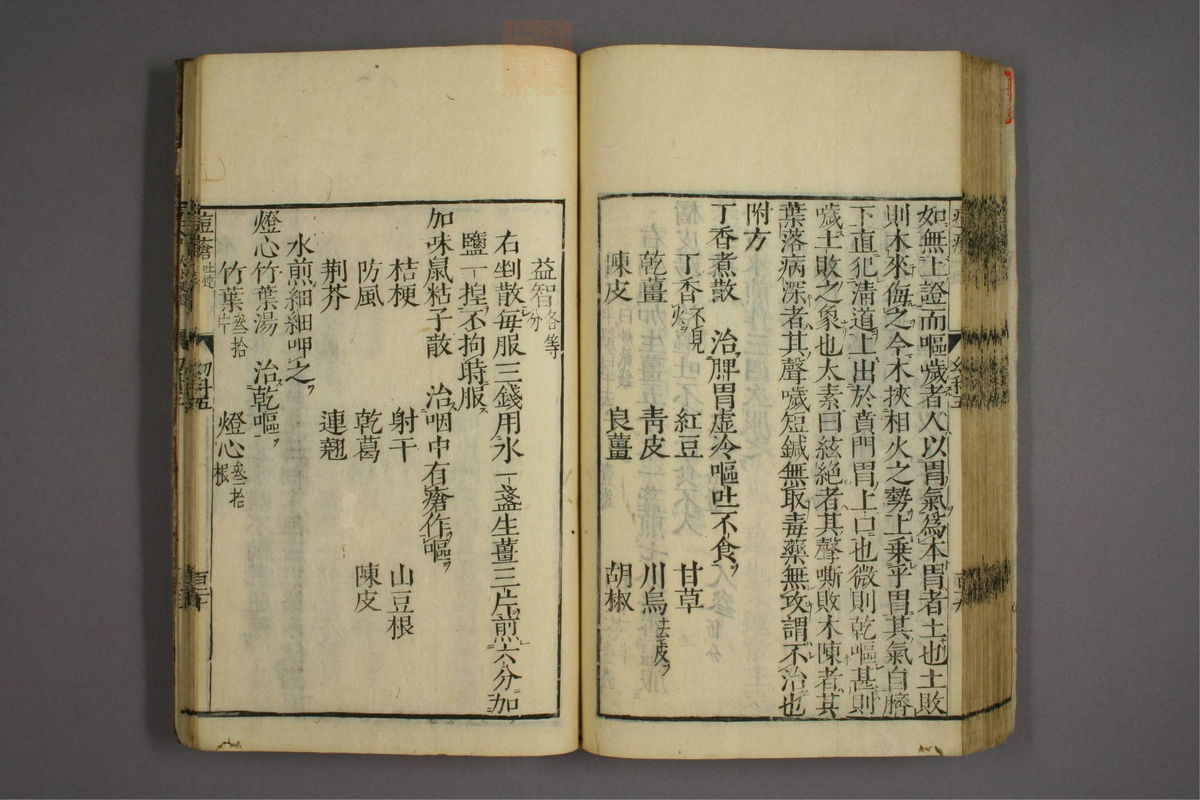 如無上證而嘔噦者人以胃氣爲本胃者土也土敗
則木來侮之今木挾相火之勢上乘乎胃其氣自臍
下直犯清道上出於賁門胃上口也微則乾嘔甚則
噦土敗之象也太素曰絃絶者其聲嘶敗木陳者其
葉落病深者其聲噦短鍼無取毒藥無攻謂不治也
附方
丁香煮散　治脾胃虛冷嘔吐不食
丁香不見火　紅豆　甘草
乾薑　靑皮　川烏去皮
陳皮　良薑　胡椒
益智各等分
右剉散每服三錢用水一盞生薑三片煎六分加
鹽一捏不拘時服
加味鼠粘子散　治咽中有瘡作嘔
桔梗　射干　山豆根
防風　乾葛　陳皮
荆芥　連翹
水煎細細呷之
燈心竹葉湯　治乾嘔
竹葉叁拾片　燈心叁拾根
痘瘡
幼科五